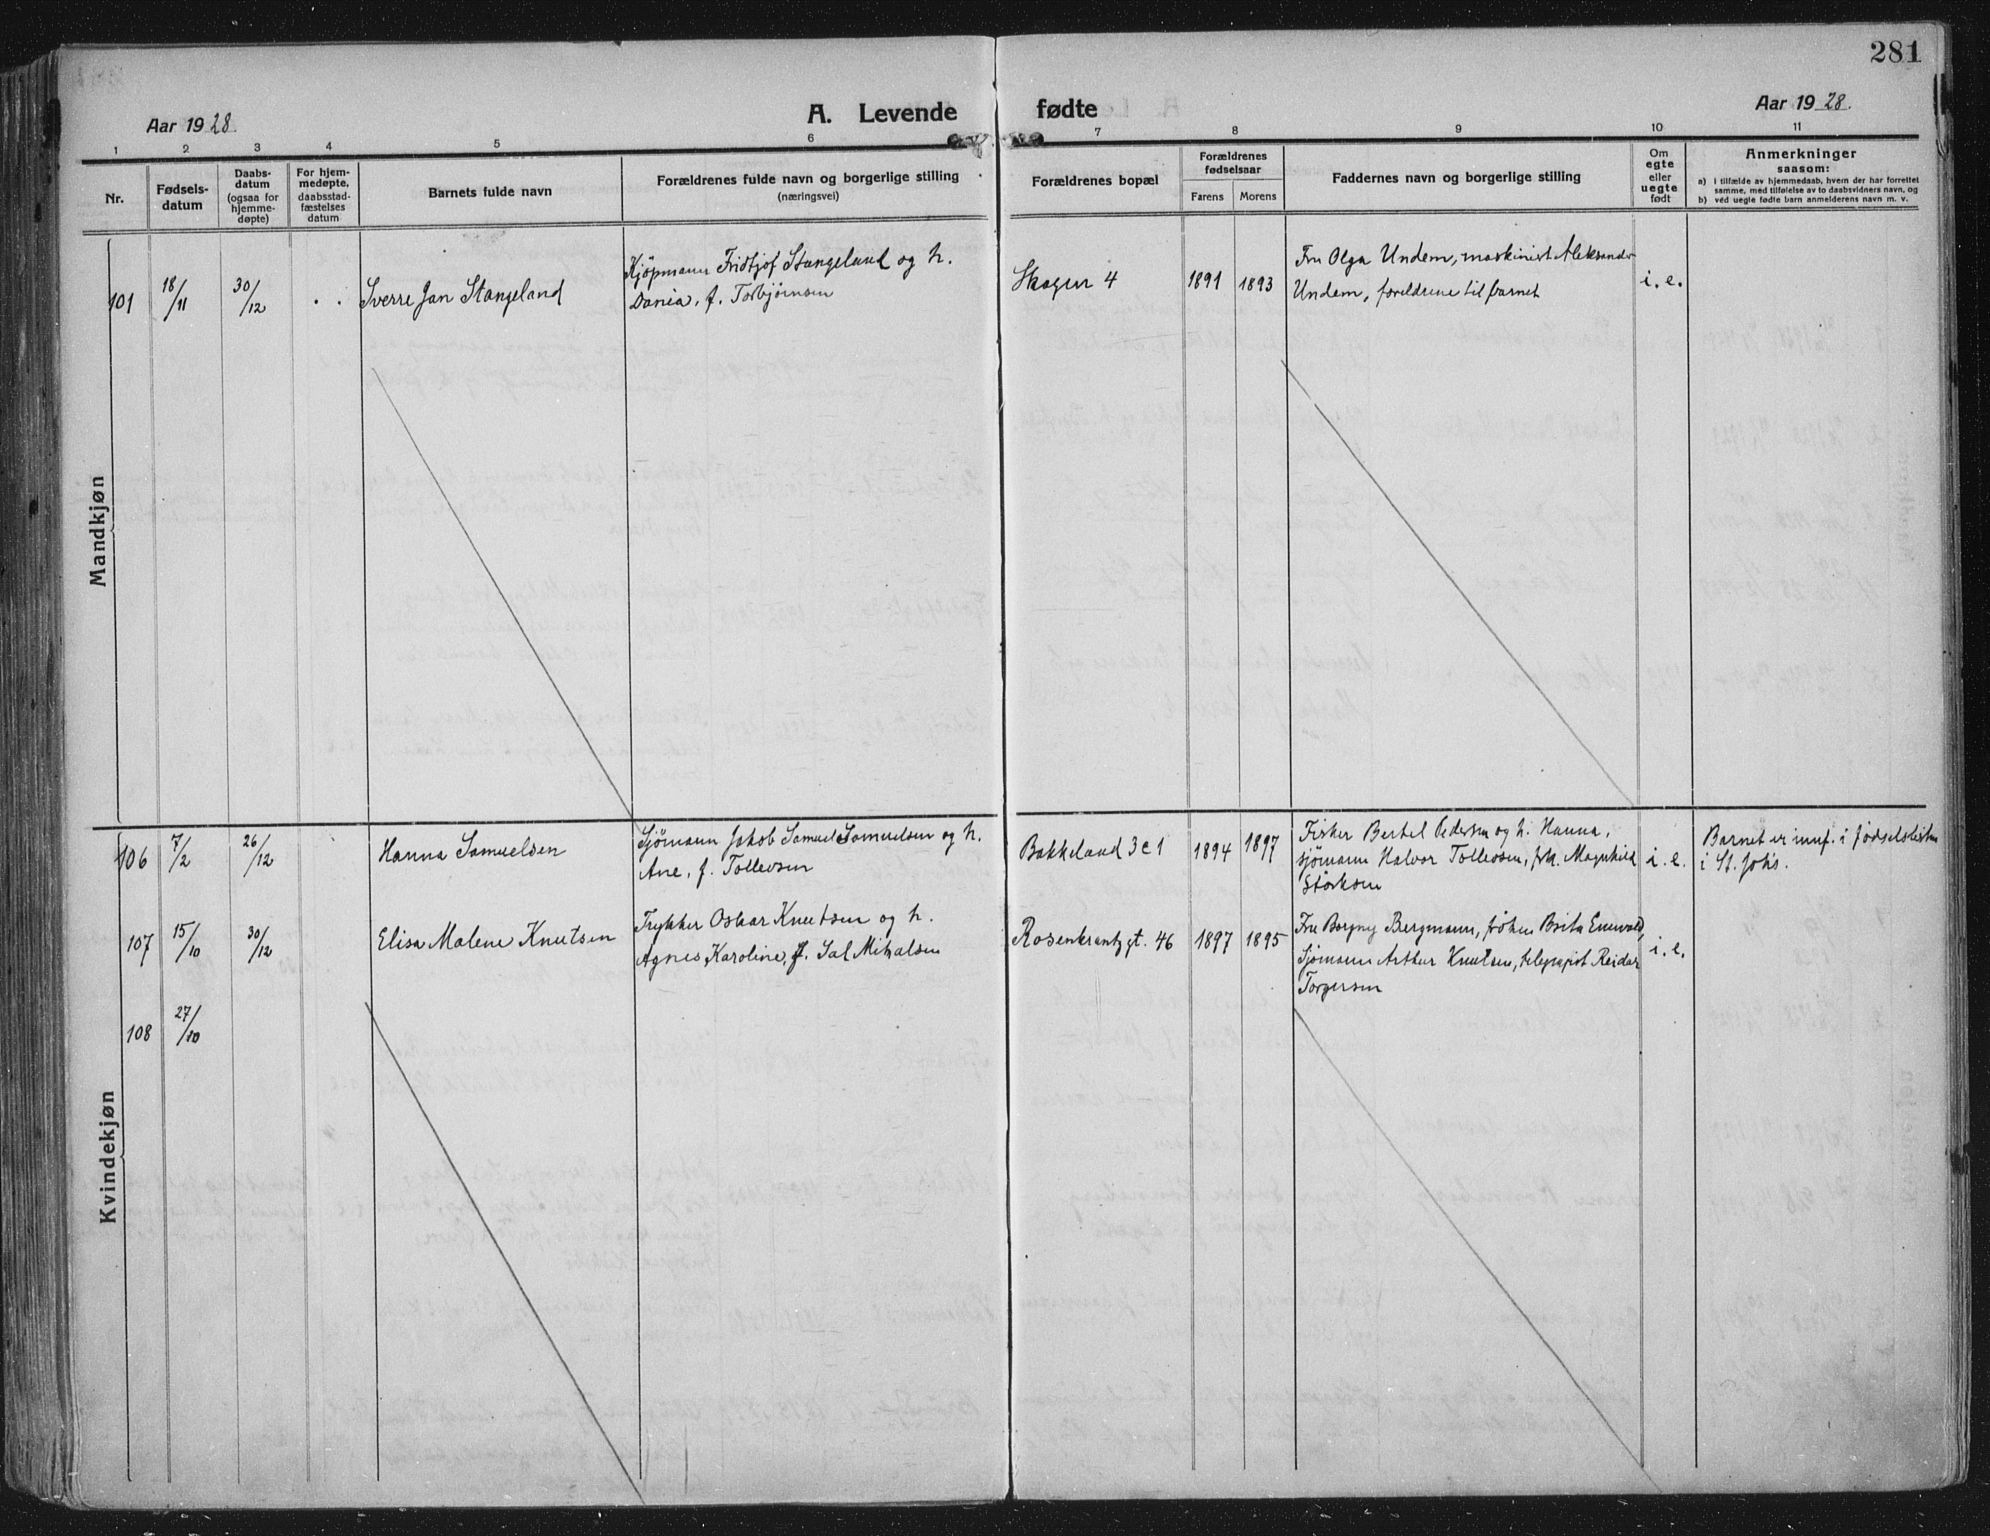 281
Aar 1928.
A. Levende fødte
Aar 1928.
1 2 3 4 5 6 7 8 9 10 11
Nr.
Fødsels-
datum
Daabs-
datum
(ogsaa for
hjemme-
døpte)
For hjem-
medøpte,
daabsstad-
fæstelses
datum
Barnets fulde navn
Forældrenes fulde navn og borgerlige stilling
(næringsvei)
Forældrenes bopæl
Forældrenes
fødselsaar
Farens Morens
Faddernes navn og borgerlige stilling
Om
egte
eller
uegte
født
Anmerkninger
saasom:
a) i tilfælde av hjemmedaab, hvem der har forrettet
samme, med tilføielse av to daabsvidners navn, og
b) ved uegte fødte barn anmelderens navn m. v.
Mandkjøn
101 18/11 30/12 . . Sverre Jan Stangeland
Kjöpmann Fridtjof Stangeland og h.
Dania, f. Torbjørnsen
Skagen 4 1891 1893
Fru Olga Undem, maskinist Aleksander
Undem, foreldrene til barnet
i. e.
Kvindekjøn
106 7/2 26/12 Hanna Samuelsen
Sjømann Jakob Samuel Samuelsen og h.
Ane, f. Tollevsen
Bakkeland 3 c 1 1894 1897
Fisker Bertel Pedersen og h. Hanna,
sjømann Halvor Tollevsen, frk. Magnhild
Størksen
i. e.
Barnet er innf. i fødselslisten
i St. Joh's.
107 15/10 30/12 Elisa Malene Knutsen
Trykker Oskar Knutsen og h.
Agnes Karoline, f. Sal Mikalsen
Rosenkrantzgt. 46 1897 1895
Fru Borgny Bergmann, frøken Brita Enevald,
Sjømann Arthur Knutsen, telegrafist Reidar
Torgersen
i. e.
108 27/10